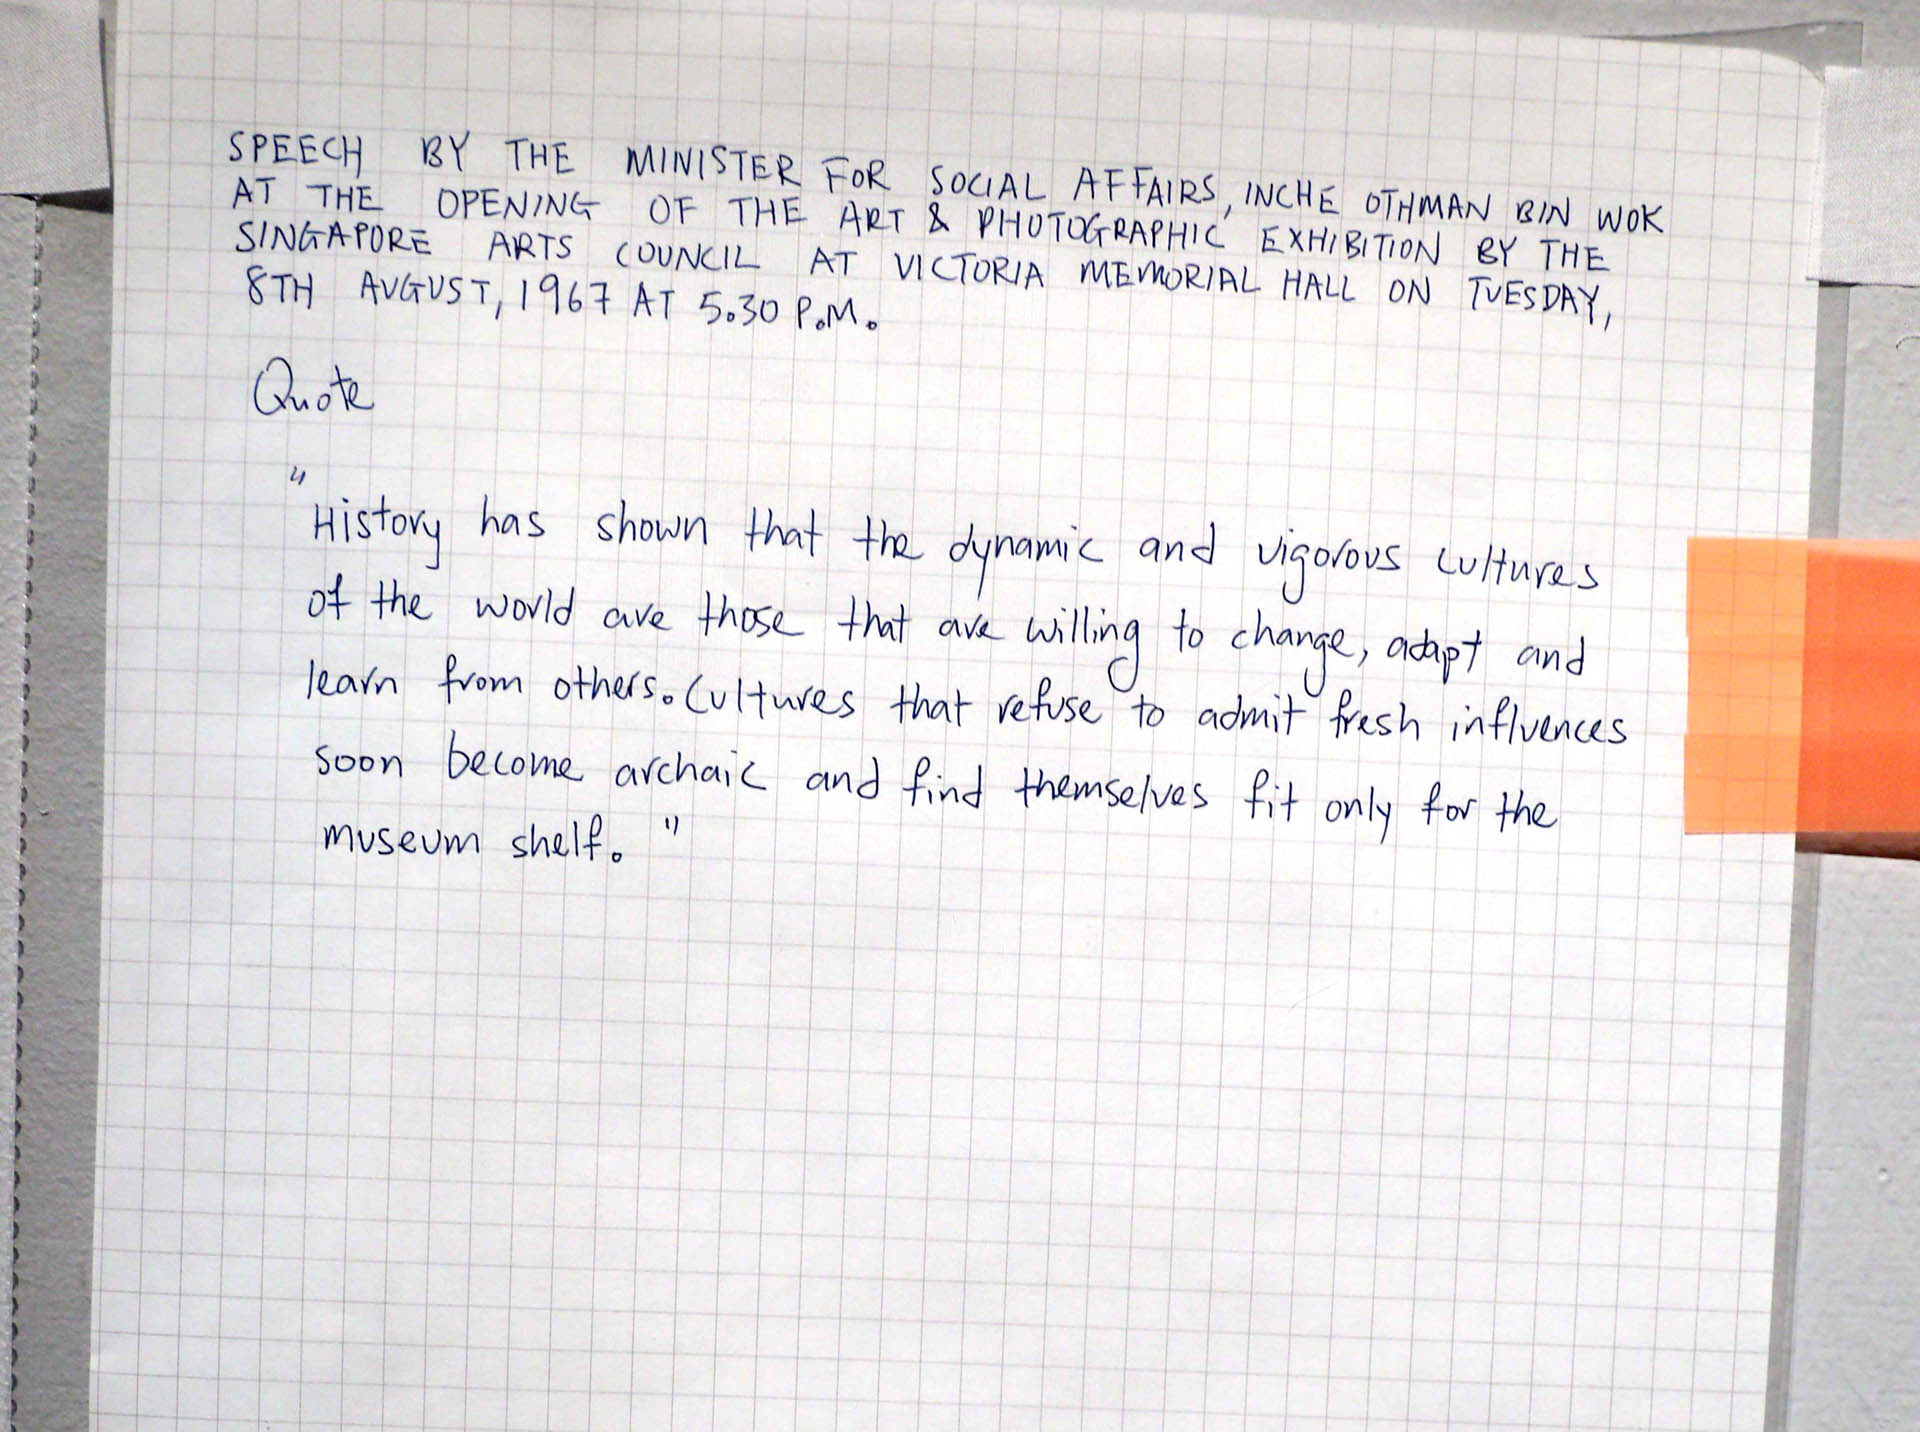 SPEECH BY THE MINISTER FOR SOCIAL AFFAIRS, INCHE OTHMAN BIN WOK
AT THE OPENING OF THE ART & PHOTOGRAPHIC EXHIBITION BY THE
SINGAPORE ARTS COUNCIL AT VICTORIA MEMORIAL HALL ON TUESDAY,
8TH AUGUST, 1967 AT 5.30 P.M.
Quote
"History has shown that the dynamic and vigorous cultures
of the world are those that are willing to change, adapt and
learn from others. Cultures that refuse to admit fresh influences
soon become archaic and find themselves fit only for the
museum shelf."